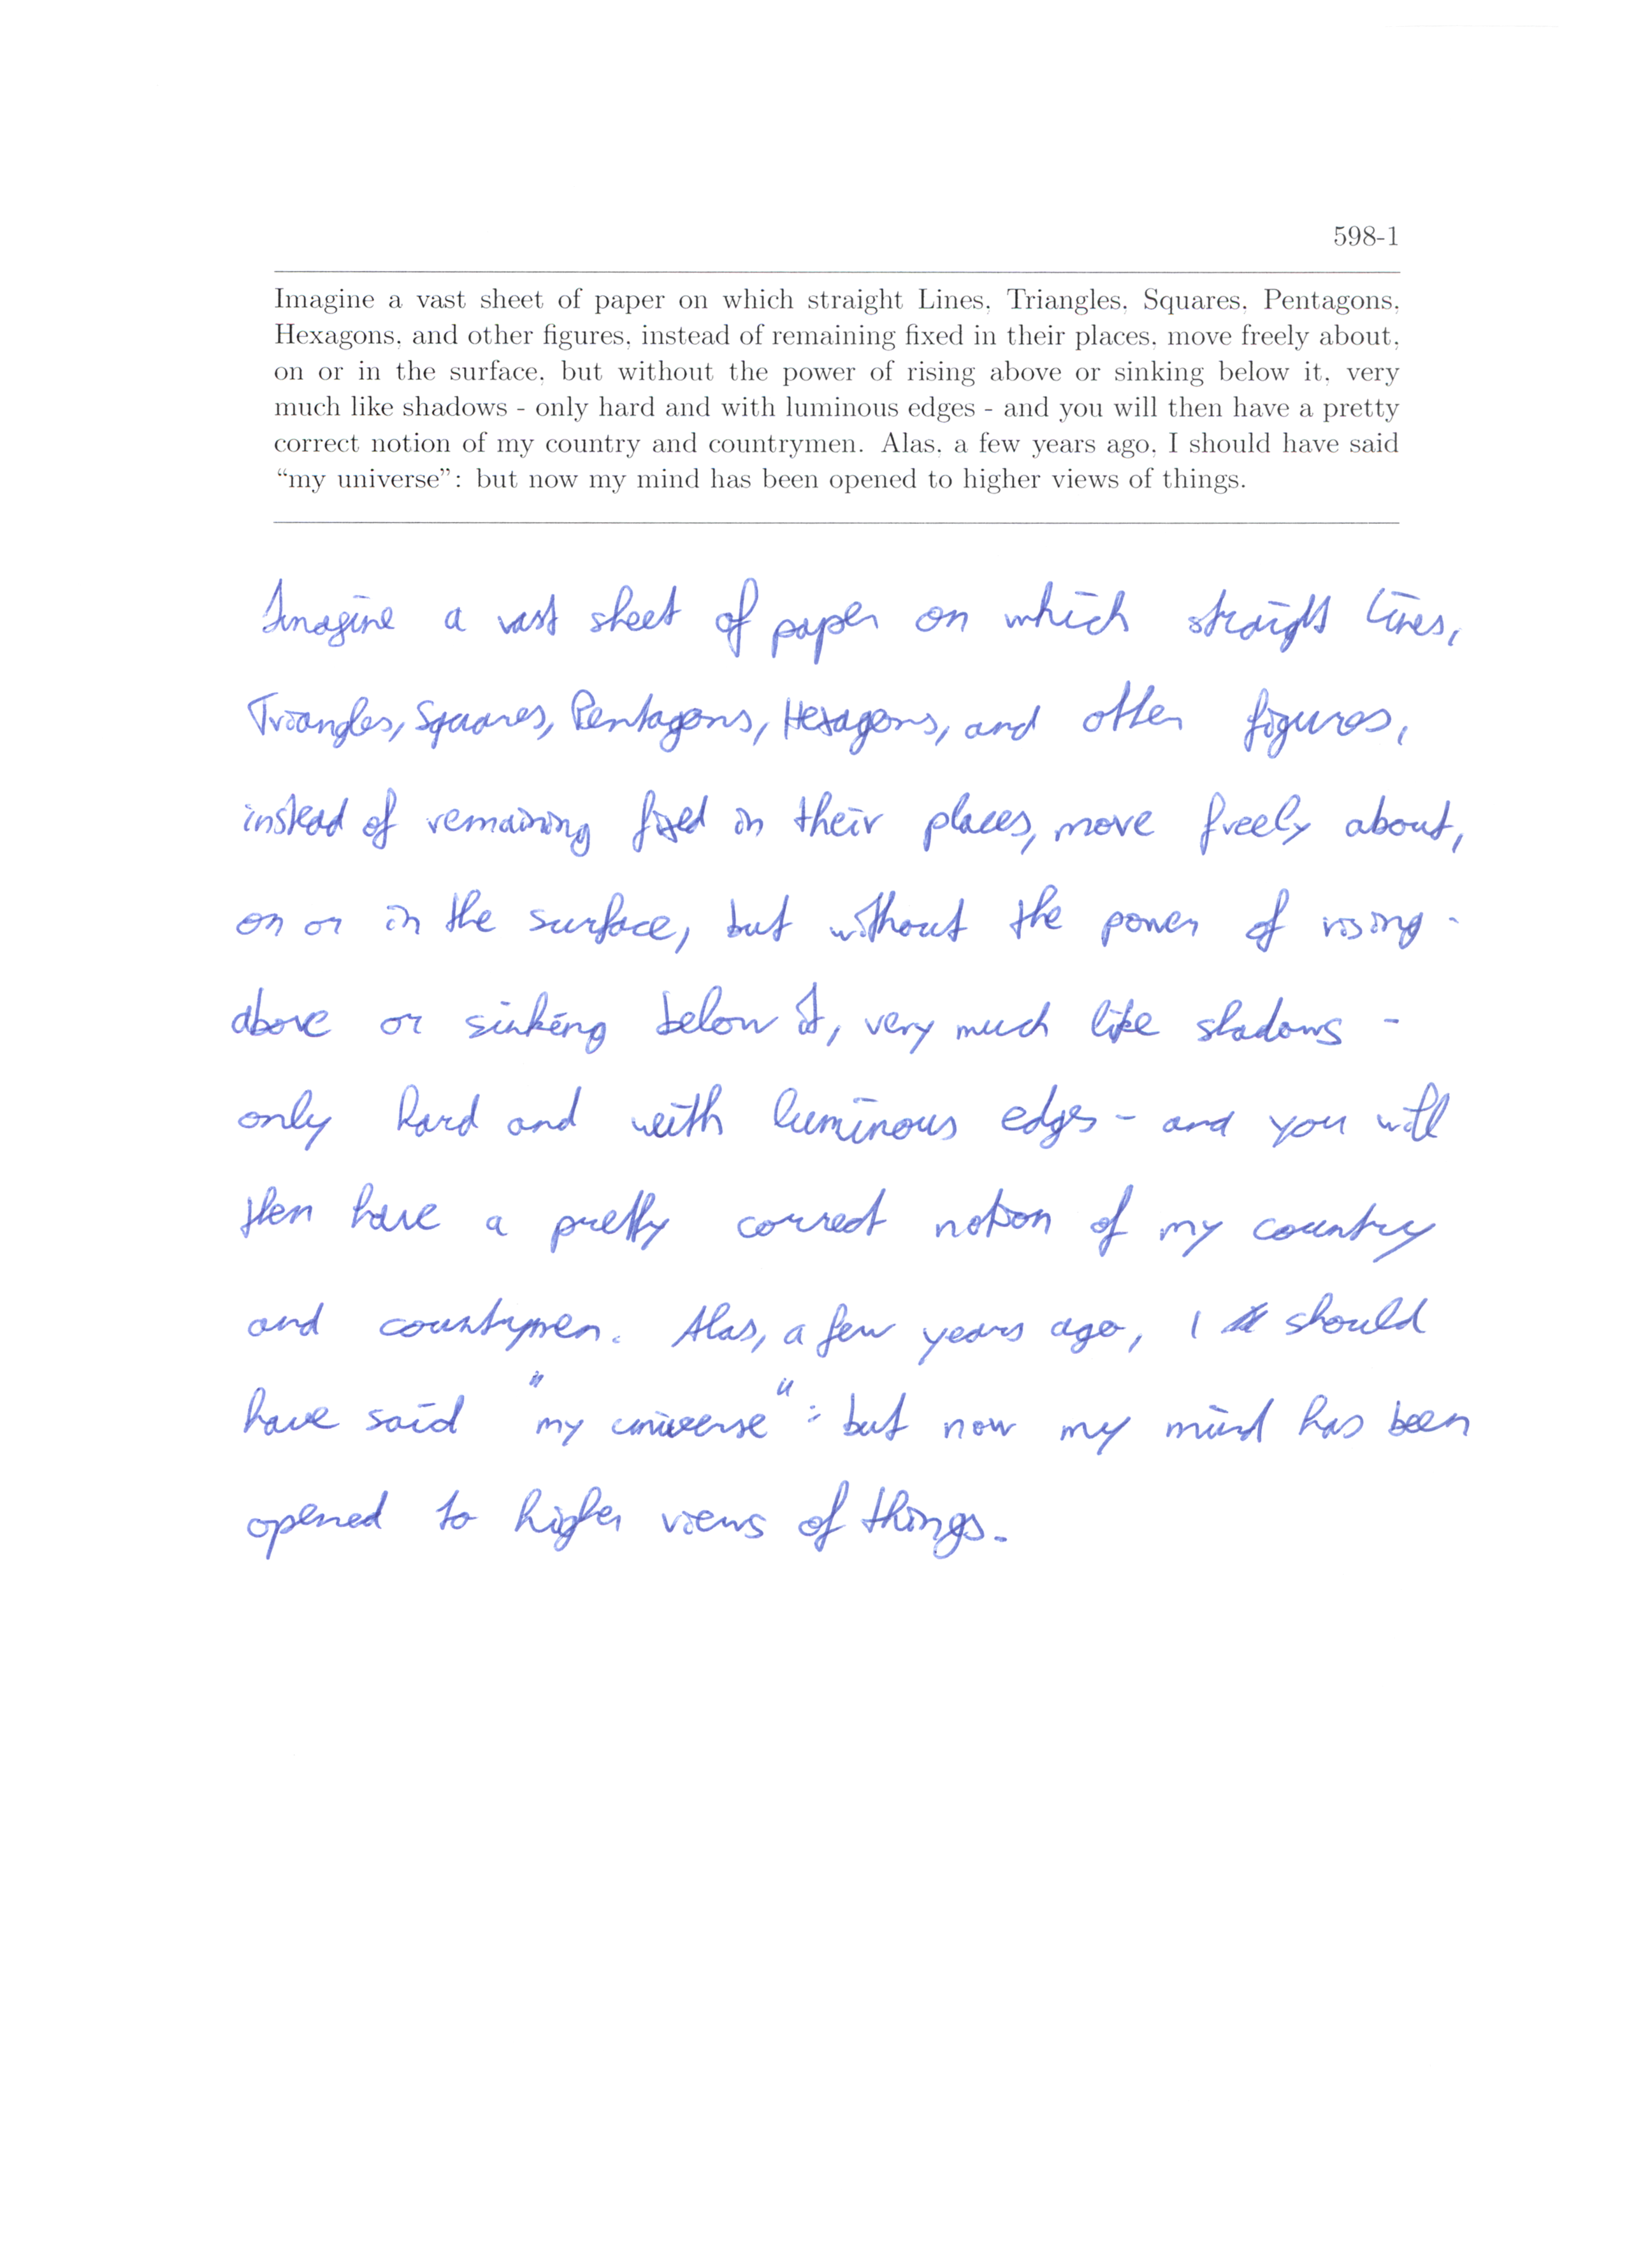 598-1
Imagine a vast sheet of paper on which straight Lines, Triangles, Squares, Pentagons,
Hexagons, and other figures, instead of remaining fixed in their places, move freely about,
on or in the surface, but without the power of rising above or sinking below it, very
much like shadows - only hard and with luminous edges - and you will then have a pretty
correct notion of my country and countrymen. Alas, a few years ago, I should have said
“my universe”: but now my mind has been opened to higher views of things.
Imagine a vast sheet of paper on which straight Lines,
Triangles, Squares, Pentagons, Hexagons, and other figures,
instead of remaining fixed in their places, move freely about,
on or in the surface, but without the power of rising -
above or sinking below it, very much like shadows -
only hard and with luminous edges - and you will
then have a pretty correct notion of my country
and countrymen. Alas, a few years ago, I should
have said "my universe": but now my mind has been
opened to higher views of things.